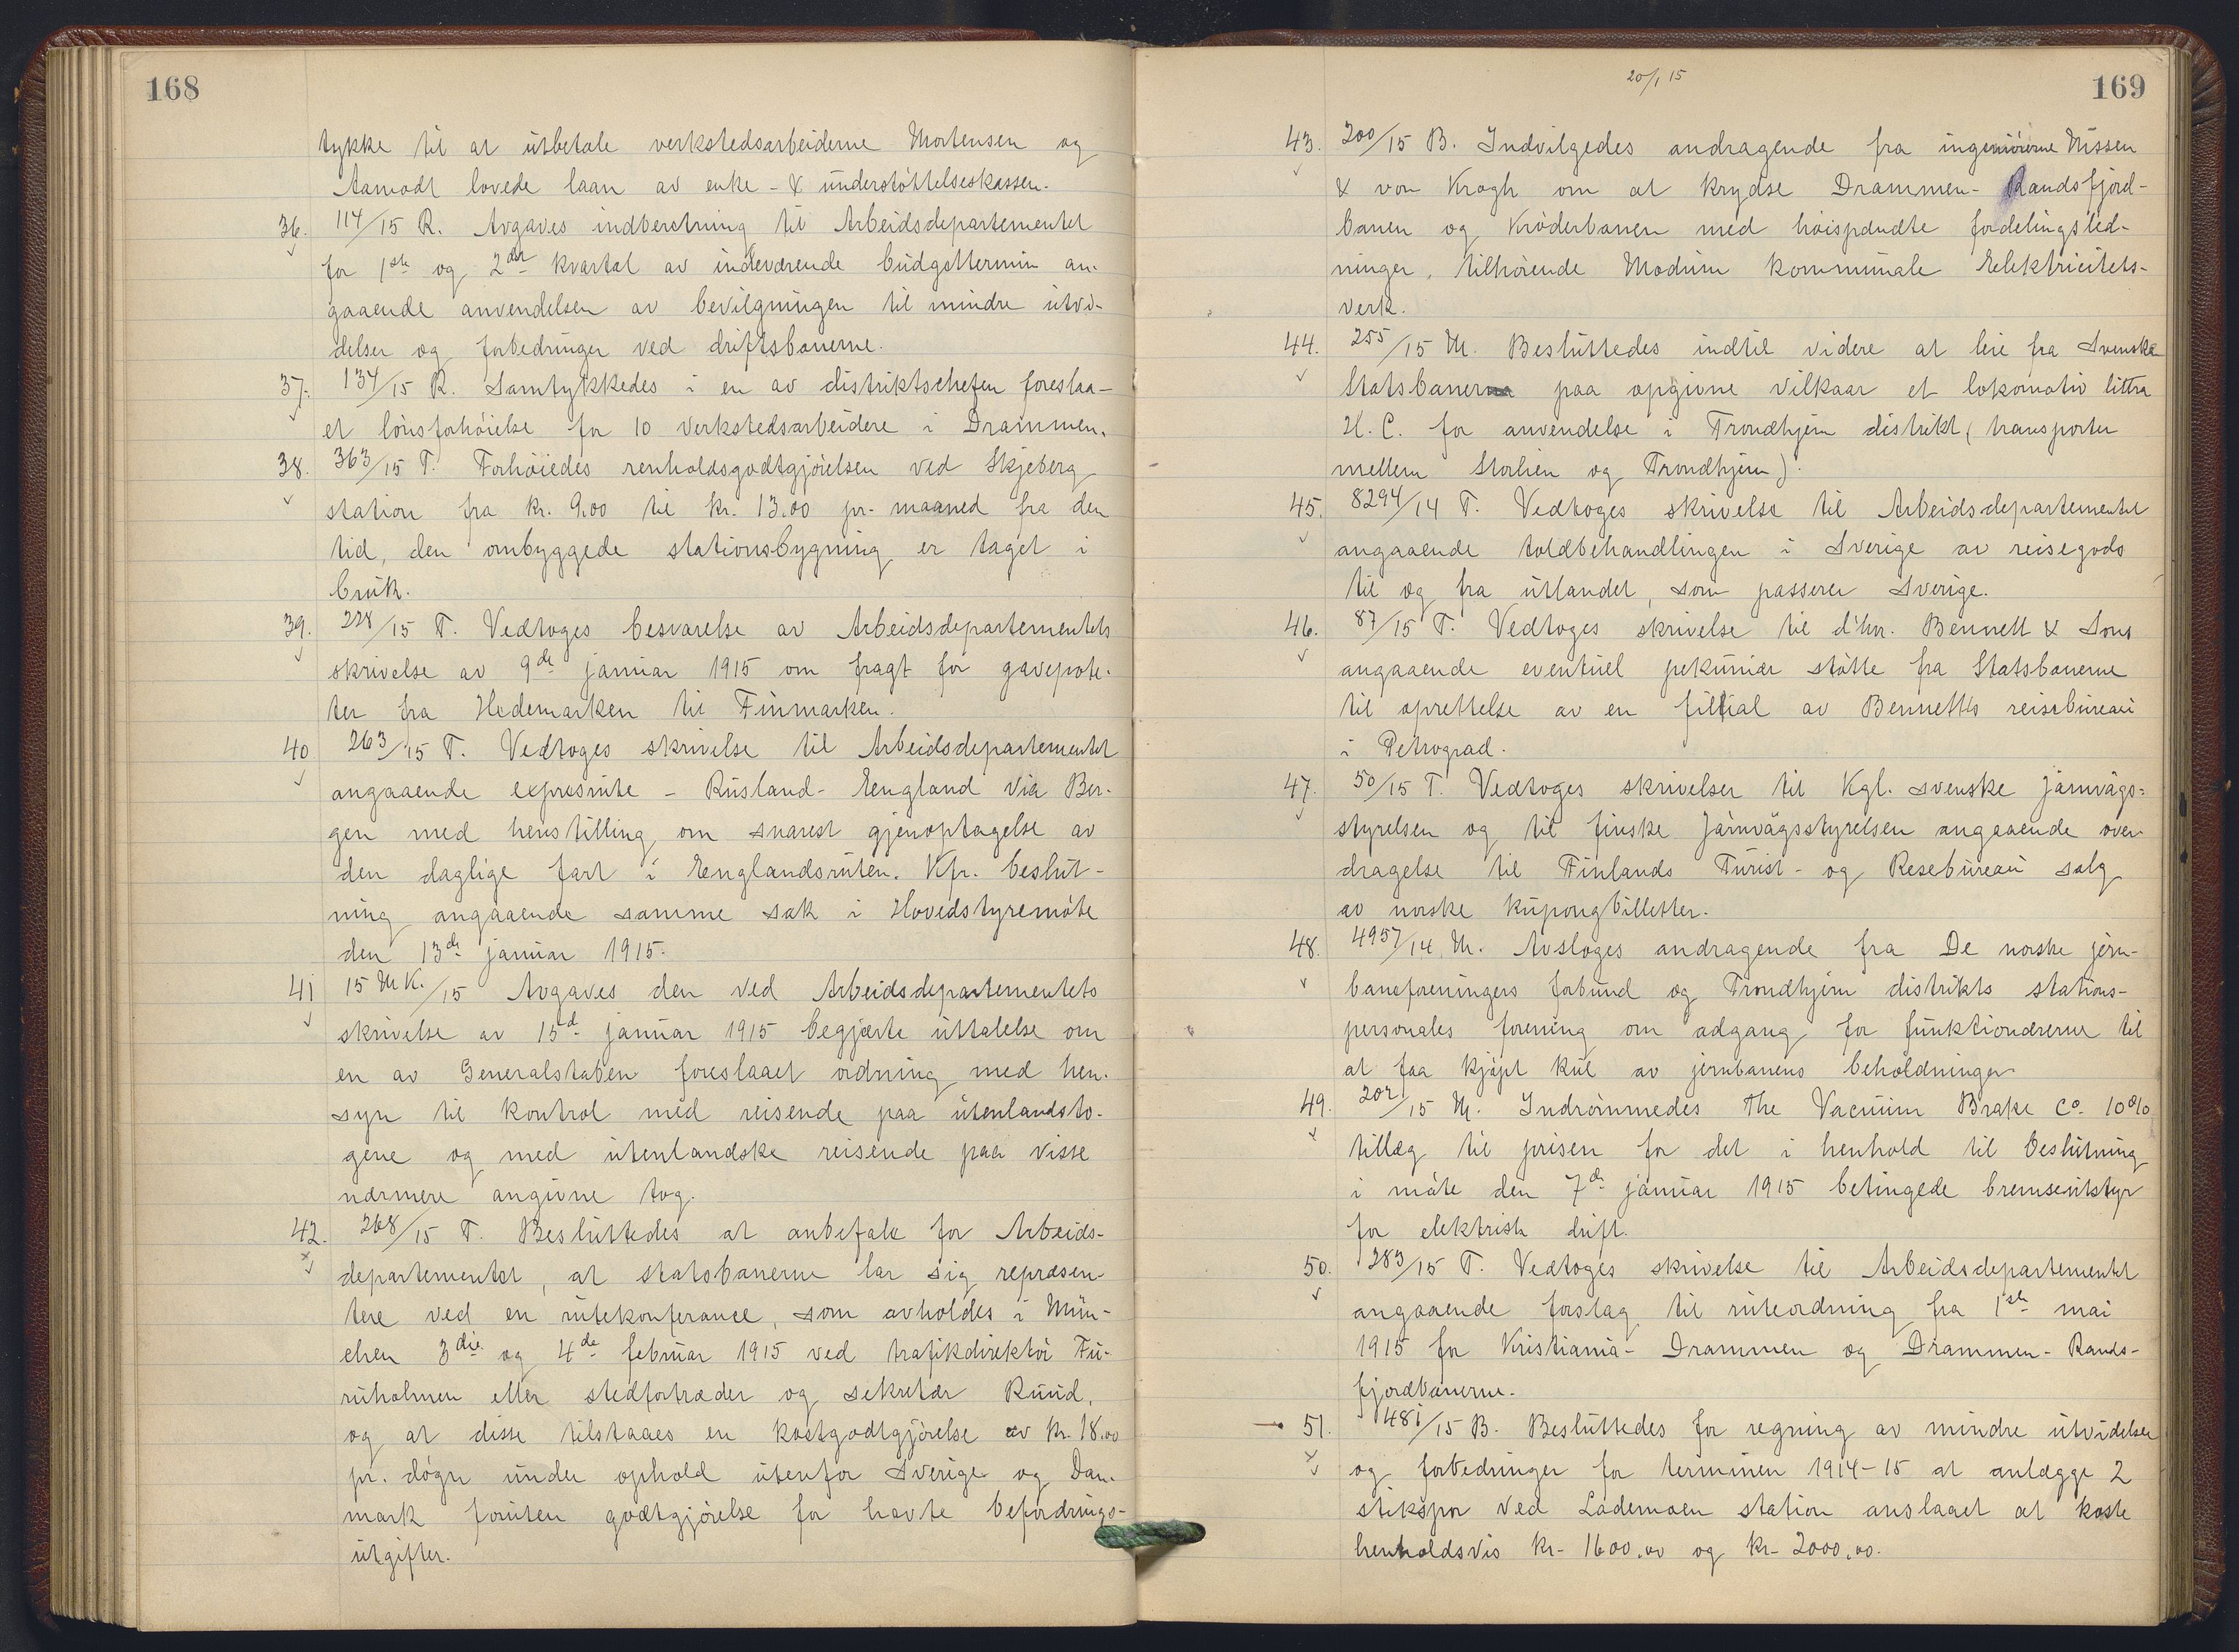 168
tykke til at utbetale verkstedsarbeiderne Mortensen og
Aamodt lovede laan av enke- & understøttelseskassen.
36. 114/15 R. Avgaves indberetning til Arbeidsdepartementet
for 1ste og 2det kvartal av indeværende budgettermin an-
gaaende anvendelsen av bevilgningen til mindre utvi-
delser og forbedringer ved driftsbanerne.
37. 134/15 R. Samtykkedes i en av distriktschefen foreslaa-
et lønsforhøielse for 10 verkstedsarbeidere i Drammen.
38. 363/15 T. Forhøiedes renholdsgodtgjørelsen ved Skjeberg
station fra kr. 9.00 til kr. 13.00 pr. maaned fra den
tid, den ombyggede stationsbygning er taget i
bruk.
39. 228/15 T. Vedtoges besvarelse av Arbeidsdepartementets
skrivelse av 9de januar 1915 om fragt for gavepote-
ter fra Hedemarken til Finmarken.
40 263/15 T. Vedtoges skrivelse til Arbeidsdepartementet
angaaende expresrute - Rusland- England via Ber-
gen med henstilling om snarest gjenoptagelse av
den daglige fart i Englandsruten. Kfr. beslut-
ning angaaende samme sak i Hovedstyremøte
den 13de januar 1915.
41 15 M K./15 Avgaves den ved Arbeidsdepartementets
skrivelse av 15de januar 1915 begjærte uttalelse om
en av Generalstaben foreslaaet ordning med hen-
syn til kontrol med reisende paa utenlandsto-
gene og med utenlandske reisende paa visse
nærmere angivne tog.
42. 268/15 T. Besluttedes at anbefale for Arbeids-
departementet, at statsbanerne lar sig repræsen-
tere ved en rutekonferance, som avholdes i Mün-
chen 3die og 4de februar 1915 ved trafikdirektør Fu-
ruholmen eller stedfortræder og sekretær Ruud,
og at disse tilstaaes en kostgodtgjørelse av kr. 18.00
pr. døgn under ophold utenfor Sverige og Dan-
mark foruten godtgjørelse for havte befordrings-
utgifter.
20/1 15
169
43. 200/15 B. Indvilgedes andragende fra ingeniørerne Nissen
& von Krogh om at krydse Drammen- Randsfjord-
banen og Krøderbanen med høispændte fordelingsled-
ninger, tilhørende Modum kommunale Elektricitets-
verk.
44. 255/15 M. Besluttedes indtil videre at leie fra Svenska
Statsbaner paa opgivne vilkaar et lokomotiv littra
H. C. for anvendelse i Trondhjem distrikt (transporter
mellem Storlien og Trondhjem).
45. 8294/14 T. Vedtoges skrivelse til Arbeidsdepartementet
angaaende toldbehandlingen i Sverige av reisegods
til og fra utlandet, som passerer Sverige.
46. 87/15 T. Vedtoges skrivelse til d'hrr. Bennett & Sons
angaaende eventuel pekuniær støtte fra Statsbanerne
til oprettelse av en filial av Bennetts reisebureau
i Petrograd.
47. 50/15 T. Vedtoges skrivelser til Kgl. svenske järnvägs-
styrelsen og til finske Järnvägsstyrelsen angaaende over-
dragelse til Finlands Turist- og Resebureau salg
av norske kupongbilletter.
48. 4957/14 M. Avsloges andragende fra De norske jern-
baneforeningers forbund og Trondhjem distrikts stations-
personales forening om adgang for funktionærerne til
at faa kjøpt kul av jernbanens beholdninger
49. 202/15 M. Indrømmedes The Vacuum Brake Co. 10%
tillæg til prisen for det i henhold til beslutning
i møte den 7de januar 1915 betingede bremseutstyr
for elektrisk drift.
50. 283/15 T. Vedtoges skrivelse til Arbeidsdepartementet
angaaende forslag til ruteordning fra 1ste mai
1915 for Kristiania- Drammen og Drammen- Rands-
fjordbanerne.
51. 481/15 B. Besluttedes for regning av mindre utvidelser
og forbedringer for terminen 1914-15 at anlægge 2
stikspor ved Lademoen station anslaaet at koste
henholdsvis kr. 1600.00 og kr. 2000.00.